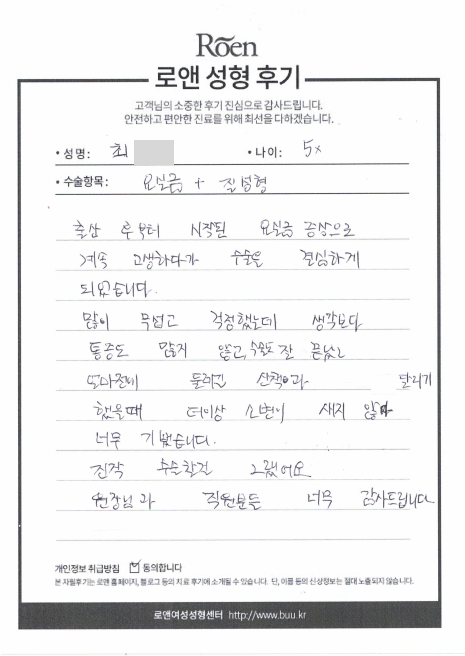 Röen
로앤 성형 후기
고객님의 소중한 후기 진심으로 감사드립니다.
안전하고 편안한 진료를 위해 최선을 다하겠습니다.
• 성명: 최 • 나이: 5x
• 수술항목: 요실금 + 질성형
출산 후부터 시작된 요실금 증상으로
계속 고생하다가 수술을 결심하게
되었습니다.
많이 무섭고 걱정했는데 생각보다
통증도 많지 않고, 수술도 잘 끝났고
둘레길 산책과 달리기
했을때 더이상 소변이 새지 않아
너무 기쁩니다.
진작 수술할걸 그랬어요
원장님과 직원분들 너무 감사드립니다
개인정보 취급방침 ☑ 동의합니다
본 자필후기는 로앤 홈페이지, 블로그 등의 치료 후기에 소개될 수 있습니다. 단, 이름 등의 신상정보는 절대 노출되지 않습니다.
로앤여성성형센터 http://www.buu.kr